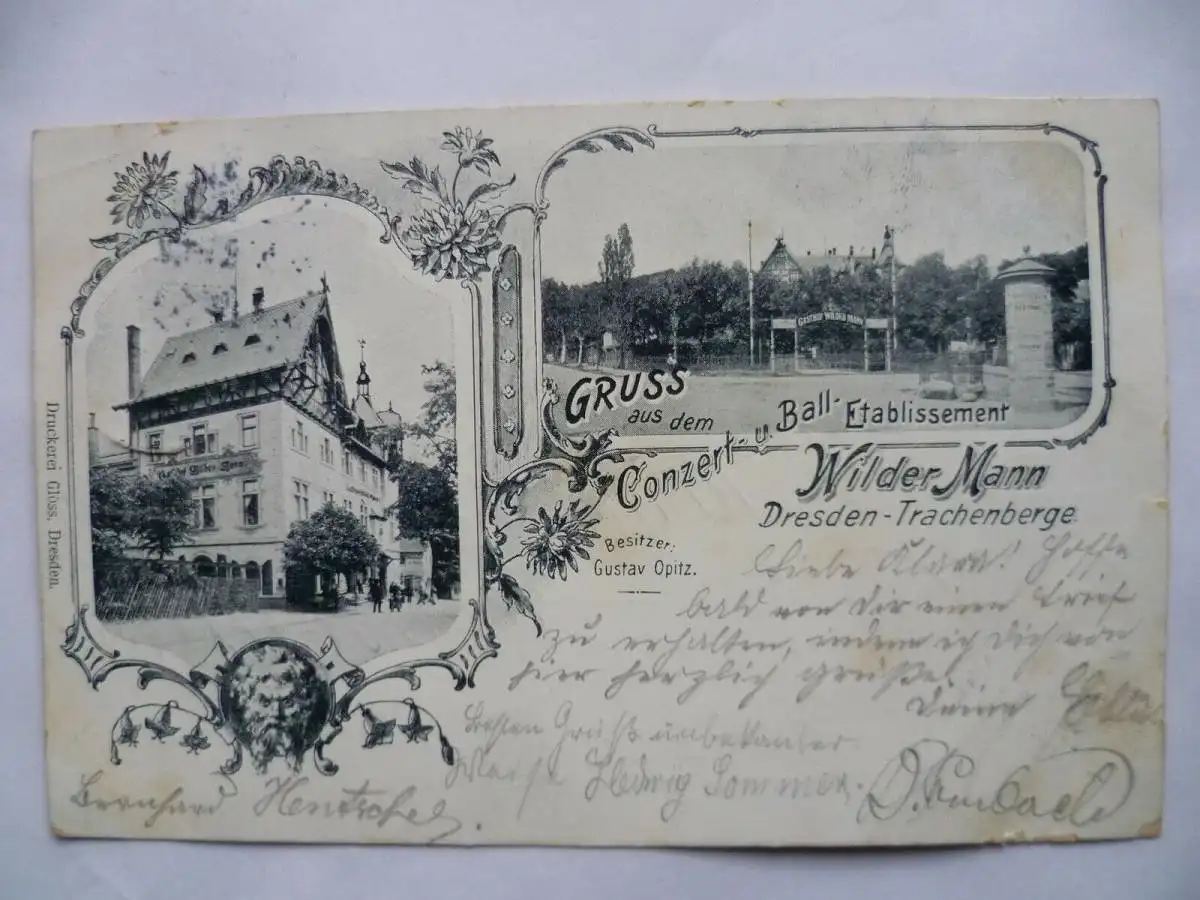 Druckerei Glöss, Dresden.
GASTHOF WILDER MANN
GRUSS
aus dem
Conzert- u. Ball-Etablissement
Wilder Mann
Dresden-Trachenberge.
Besitzer:
Gustav Opitz.
Liebe Klara! Hoffe
bald von Dir einen Brief
zu erhalten, indem ich Dich von
hier herzlich grüße.
Deine
Besten Gruß unbekanter
Weise Hedwig Sommer.
Bernhard Hentschel.